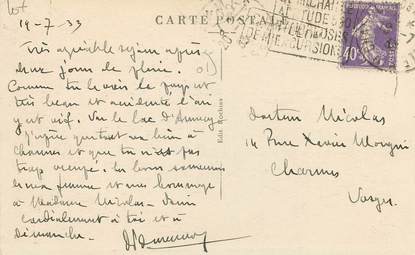 19-7-33
CARTE POSTALE
Très agréable séjour après
deux jours de pluie.
Comme tu le vois le pays est
très beau et accidenté l'air
y est vif. Vu le lac d'Annecy
J'espère que tout va bien à
Charmes et que tu n'es pas
trop occupé. Les bons souvenirs
de ma femme et mes hommages
à Madame Nicolas - Bien
cordialement à toi et à
dimanche -
Docteur Nicolas
14 Rue Xavier Mougin
Charmes
Vosges.
ALTITUDE
D'EXCURSIONS
40c